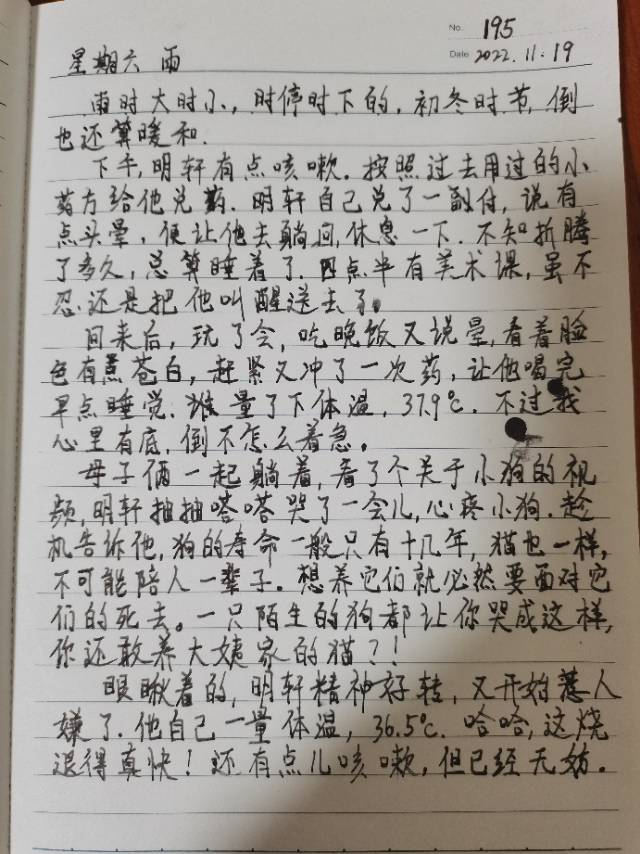 No. 195
Date 2022.11.19
星期六 雨
雨时大时小,时停时下的,初冬时节,倒
也还算暖和.
下午,明轩有点咳嗽.按照过去用过的小
药方给他兑药.明轩自己兑了一副付,说有
点头晕,便让他去躺回,休息一下.不知折腾
了多久,总算睡着了.四点半有美术课,虽不
忍还是把他叫醒送去了。
回来后,玩了会,吃晚饭又说晕,看着脸
色有点苍白,赶紧又冲了一次药,让他喝完
早点睡觉.量了下体温,37.9℃.不过我
心里有底,倒不怎么着急。
母子俩一起躺着,看了个关于小狗的视
频,明轩抽抽嗒嗒哭了一会儿,心疼小狗.趁
机告诉他,狗的寿命一般只有十几年,猫也一样,
不可能陪人一辈子.想养它们就必然要面对它
们的死去。一只陌生的狗都让你哭成这样,
你还敢养大姨家的猫?!
眼瞅着的,明轩精神好转,又开始惹人
嫌了.他自己一量体温,36.5℃.哈哈,这烧
退得真快!还有点儿咳嗽,但已经无妨.